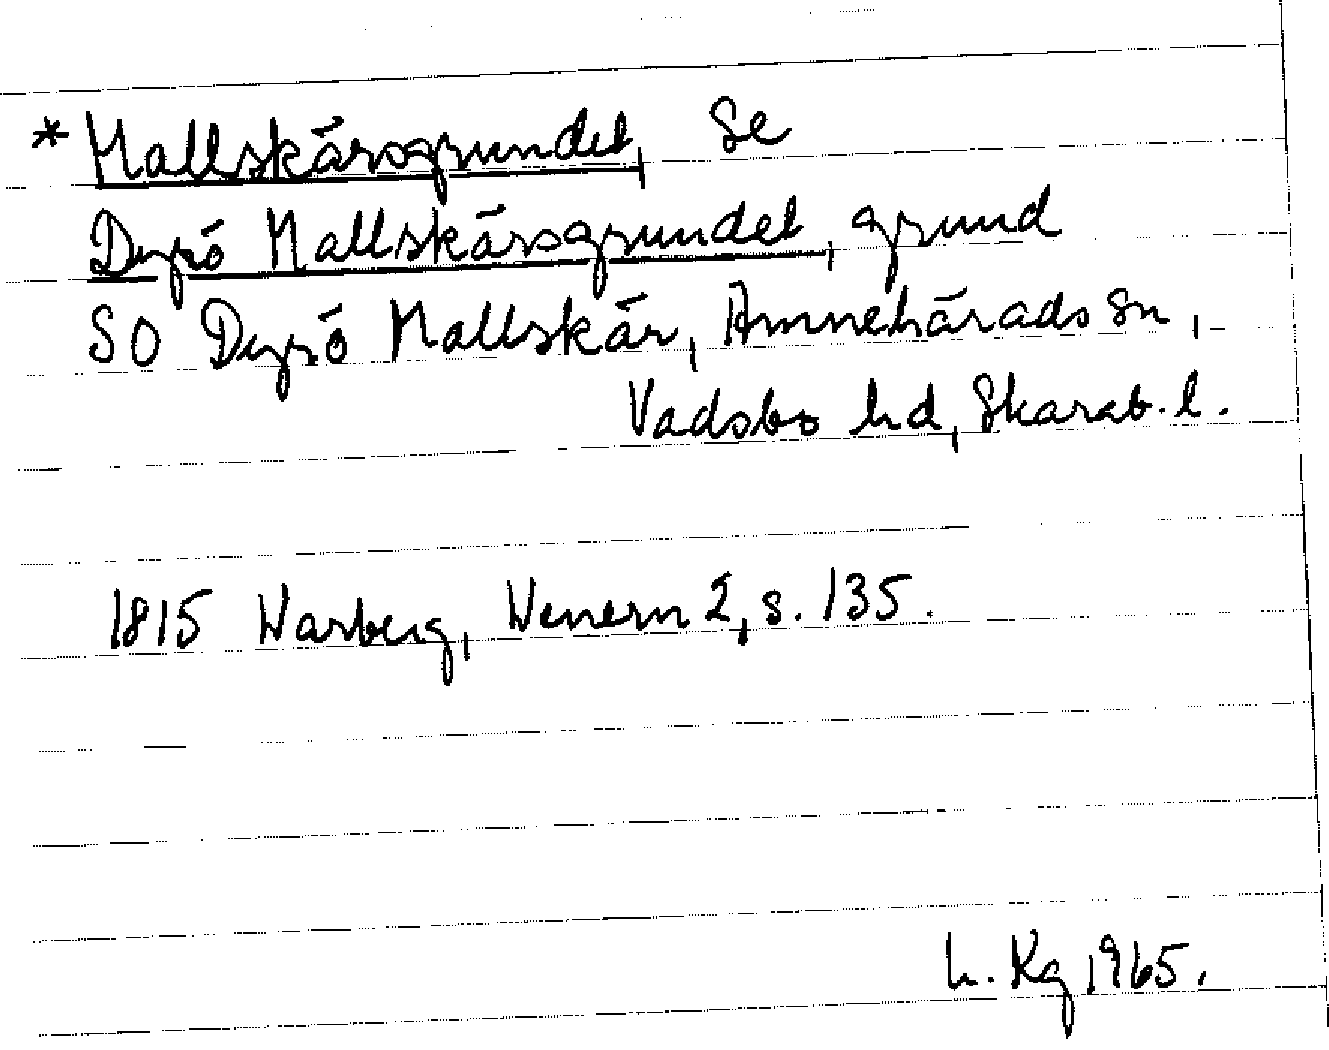 * Mallskärsgrundet, se
Dyrö Mallskärsgrundet, grund
SO Dyrö Mallskär, Amnehärads sn,
Vadsbo hd, Skarab. l.
1815 Warberg, Wenern 2, s. 135.
h. Kg 1965.